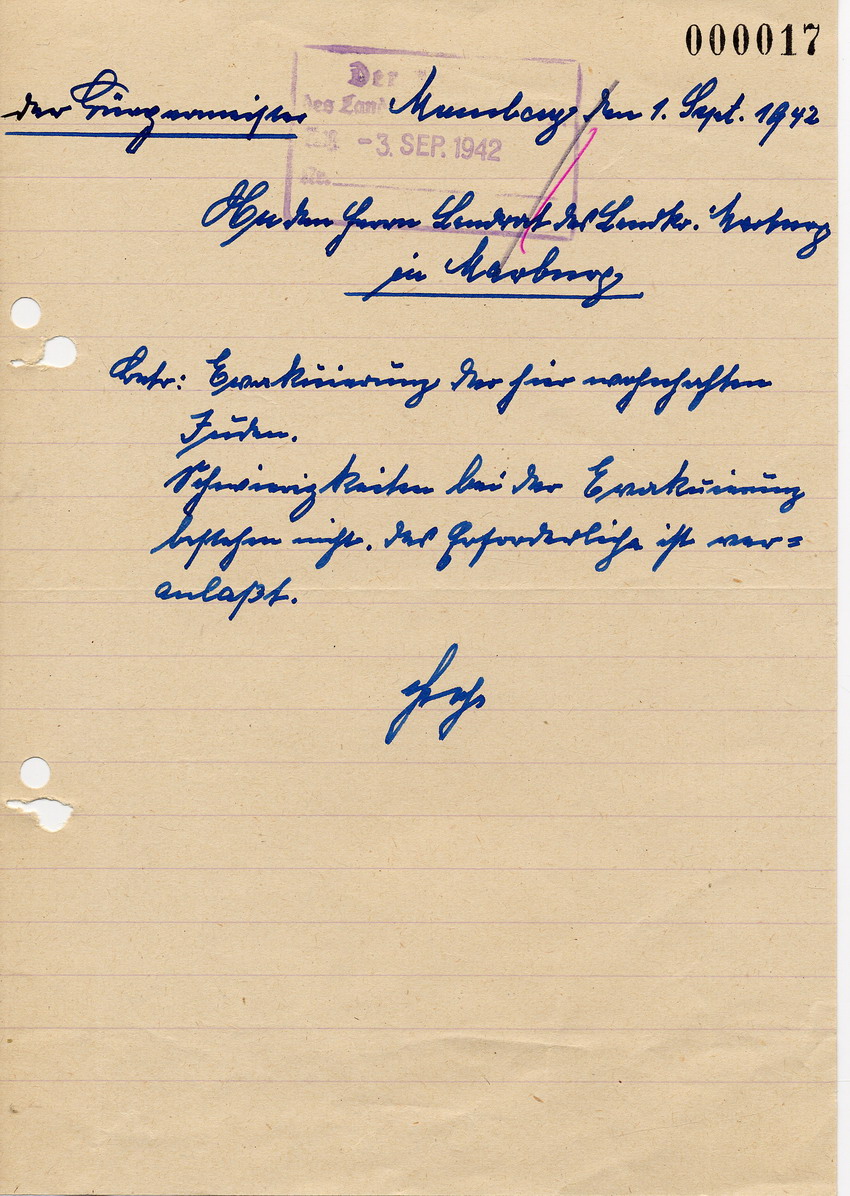 000017
Der
des Land
-3. SEP. 1942
Nr.
der Bürgermeister Momberg, den 1. Sept. 1942
An den Herrn Landrat des Landkr. Marburg
in Marburg
Betr: Evakuierung der hier wohnhaften
Juden.
Schwierigkeiten bei der Evakuierung
bestehen nicht. das Erforderliche ist ver=
anlaßt.